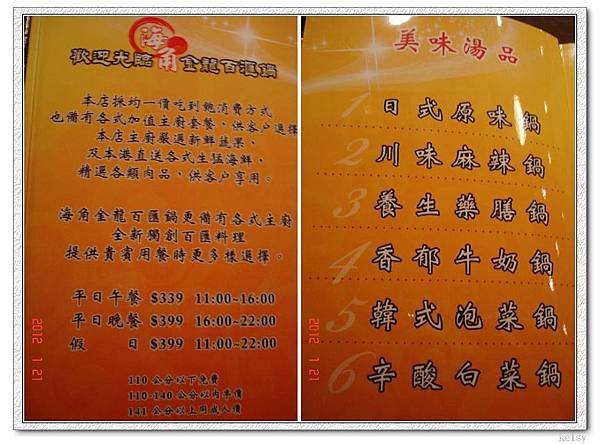 歡迎光臨海角金龍百匯鍋
本店採均一價吃到飽消費方式
也備有各式加值主廚套餐，供客戶選擇
本店主廚嚴選新鮮蔬果，
及本港直送各式生猛海鮮，
精選各類肉品，供客戶享用。
海角金龍百匯鍋更備有各式主廚
全新獨創百匯料理
提供貴賓用餐時更多樣選擇。
平日午餐 $339 11:00~16:00
平日晚餐 $399 16:00~22:00
假 日 $399 11:00~22:00
110 公分以下免費
110-140 公分以內半價
141 公分以上同成人價
2012 1 21
美味湯品
1 日式原味鍋
2 川味麻辣鍋
3 養生藥膳鍋
4 香郁牛奶鍋
5 韓式泡菜鍋
6 辛酸白菜鍋
2012 1 21
kelsy